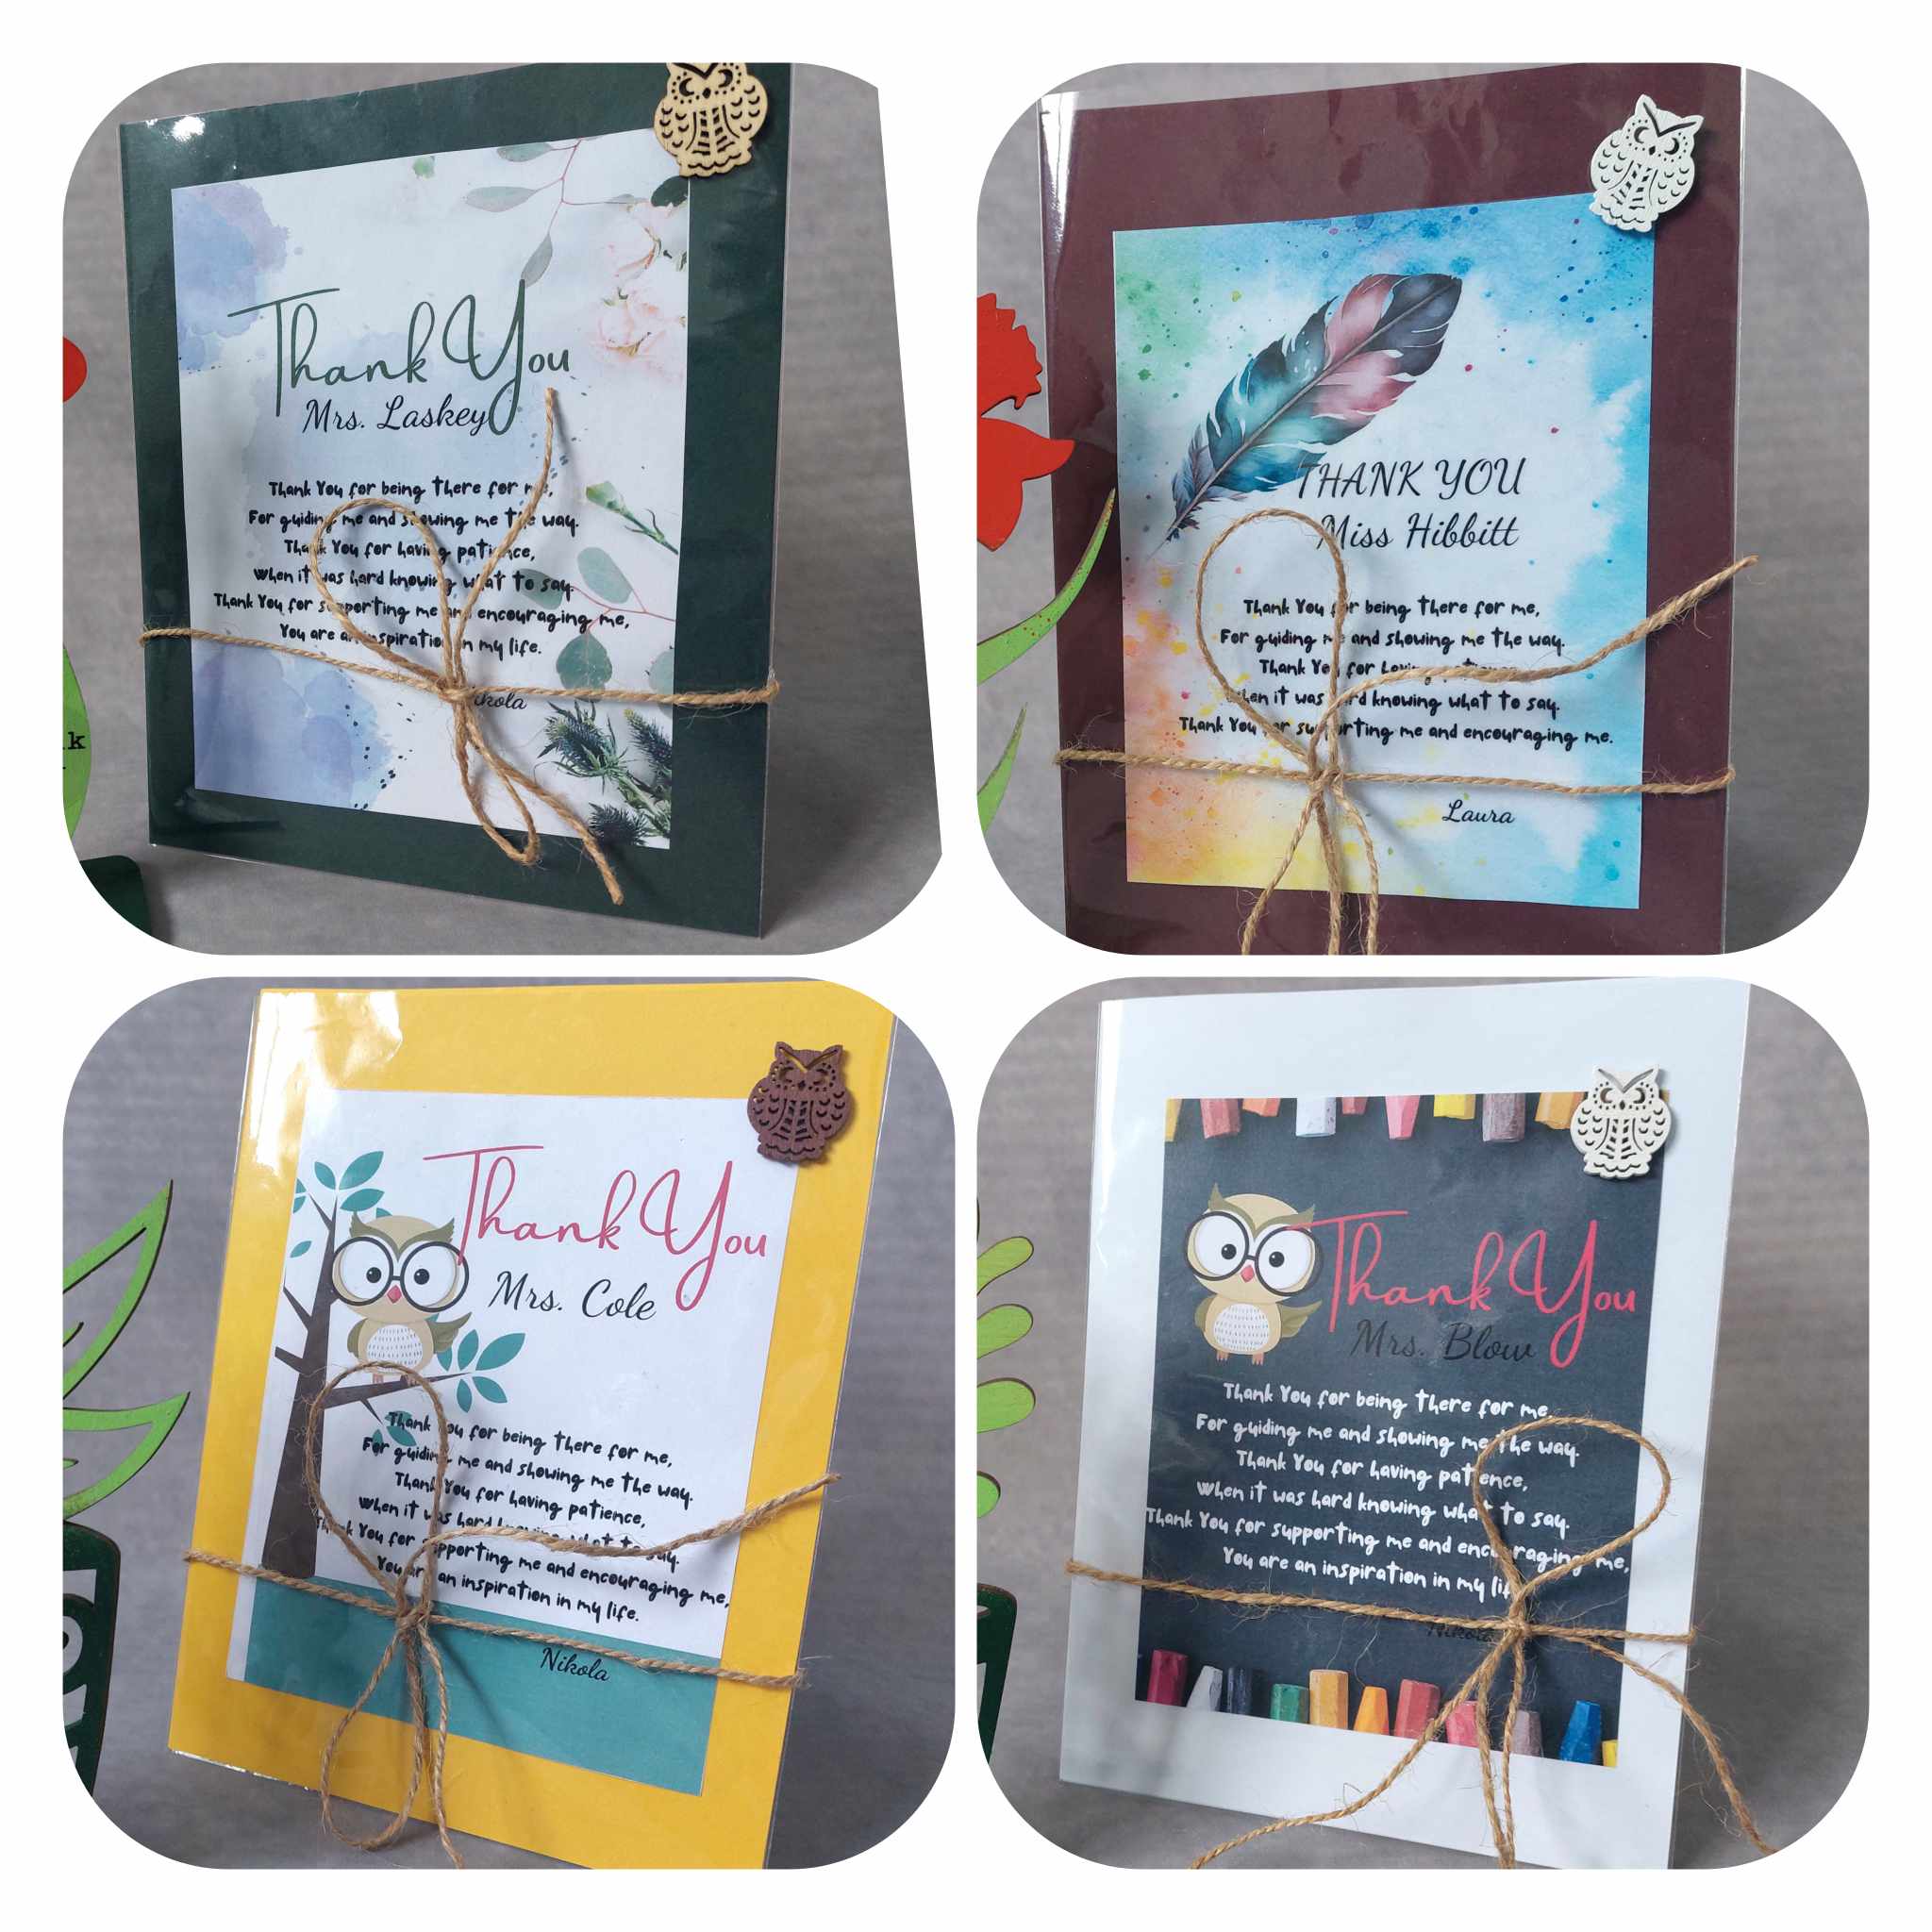 Thank You
Mrs. Laskey
Thank You for being there for me,
For guiding me and showing me the way.
Thank You for having patience,
when it was hard knowing what to say.
Thank You for supporting me and encouraging me,
You are an inspiration in my life.
Nikola
THANK YOU
Miss Hibbitt
Thank You for being there for me,
For guiding me and showing me the way.
Thank You for having patience
when it was hard knowing what to say.
Thank You for supporting me and encouraging me.
Laura
Thank You
Mrs. Cole
Thank You for being there for me,
For guiding me and showing me the way.
Thank You for having patience,
when it was hard knowing what to say.
Thank You for supporting me and encouraging me,
You are an inspiration in my life.
Nikola
Thank You
Mrs. Blow
Thank You for being there for me
For guiding me and showing me the way.
Thank You for having patience,
when it was hard knowing what to say.
Thank You for supporting me and encouraging me,
You are an inspiration in my life
Nikola